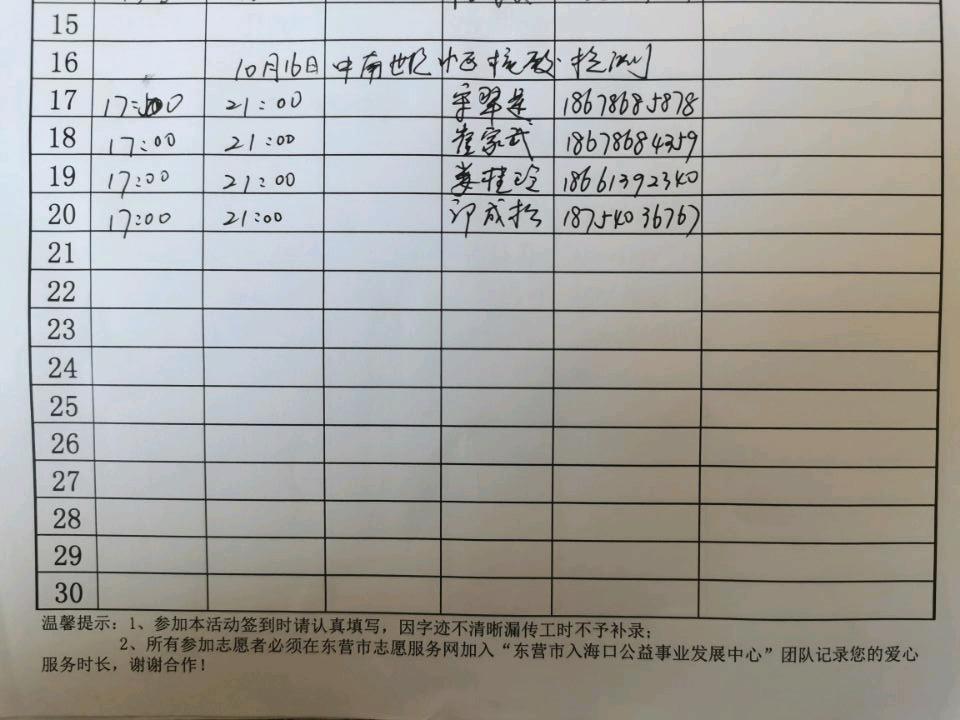 15
16 10月16日 中南世纪小区核酸检测
17 17:00 21:00 18678685878
18 17:00 21:00 崔家武 18678684359
19 17:00 21:00 娄桂玲 18661392340
20 17:00 21:00 成松 18754036767
21
22
23
24
25
26
27
28
29
30
温馨提示：1、参加本活动签到时请认真填写，因字迹不清晰漏传工时不予补录；
2、所有参加志愿者必须在东营市志愿服务网加入“东营市入海口公益事业发展中心”团队记录您的爱心
服务时长，谢谢合作！